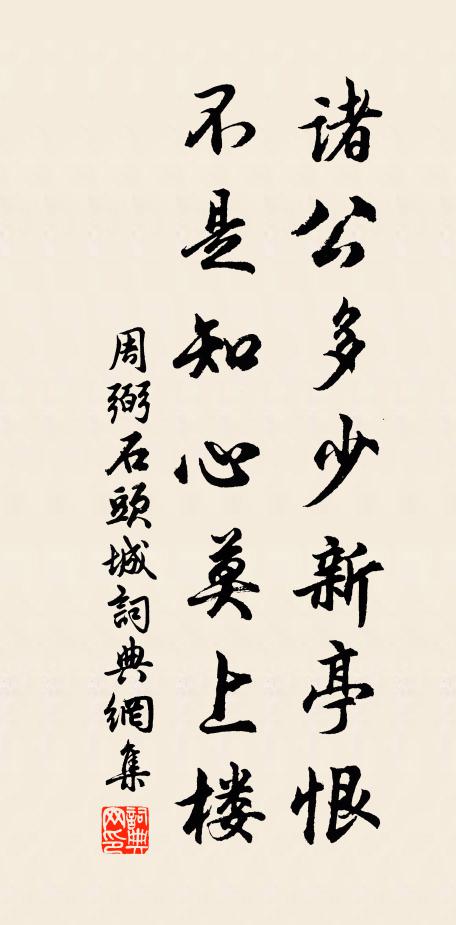 诸公多少新亭恨
不是知心莫上楼
周弼石頭城詞典網集
詞典网印